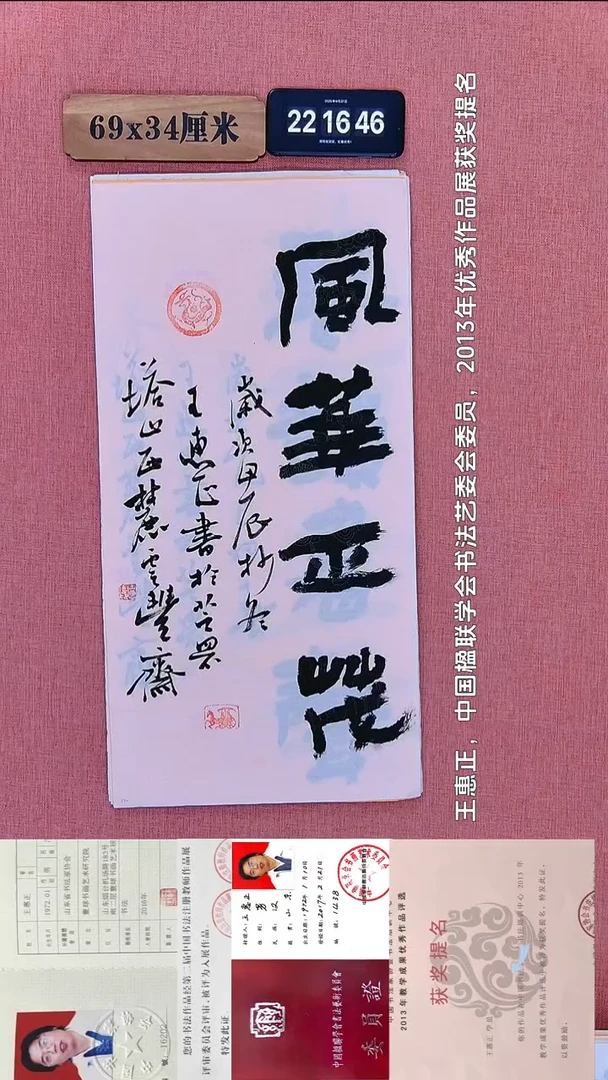 69x34厘米
22 16 46
風華正茂
歲次甲辰抄冬
王惠正書於芝罘
塔山西麓雲豐齋
王惠正，中国楹联学会书法艺委会委员，2013年优秀作品展获奖提名
王惠正
1972.01
山东省书法家协会
书法
2016年
16202
您的书法作品经第二届中国书法注册教师作品展
评审委员会评审，被评为入展作品。
特发此证
王惠正
男
汉
山东
1238
中国楹联学会书法艺术委员会
委员證
2013年教学成果优秀作品评选
获奖提名
王惠正
以资鼓励